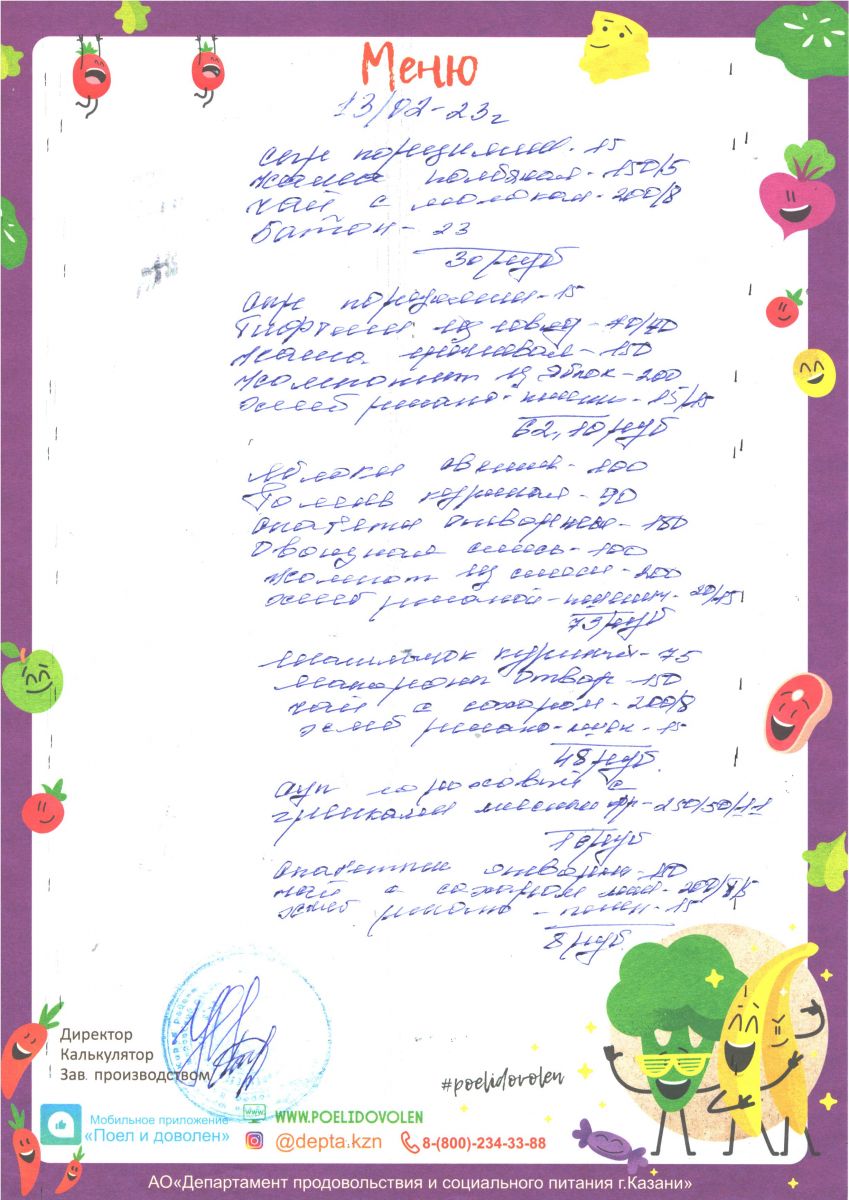 Меню
13/02-23г
сыр порционн. 15
каша полбяная - 150/5
чай с молоком - 200/8
Батон - 23
30 руб
сыр порционн - 15
Тефтели из говяд - 70/70
каша - 150
компот из яблок - 200
хлеб ржано-пшен - 15/15
62,10 руб
яблоки свежие - 100
Голень куриная - 90
спагетти отварные - 180
Овощная смесь - 100
компот из смеси - 200
хлеб ржаной-пшенич. 20/15
73 руб
шашлычок куриный - 75
макароны отвар - 150
чай с сахаром - 200/8
хлеб ржано-пшен - 15
48 руб.
суп гороховый с
гренками мясным фр - 250/50/11
руб
спагетти отварн - 180
чай с сахаром
хлеб ржано - пшен - 15
8 руб.
Директор
Калькулятор
Зав. производством
#poelidovolen
Мобильное приложение
«Поел и доволен»
www.
WWW.POELIDOVOLEN
@depta.kzn
8-(800)-234-33-88
АО«Департамент продовольствия и социального питания г.Казани»